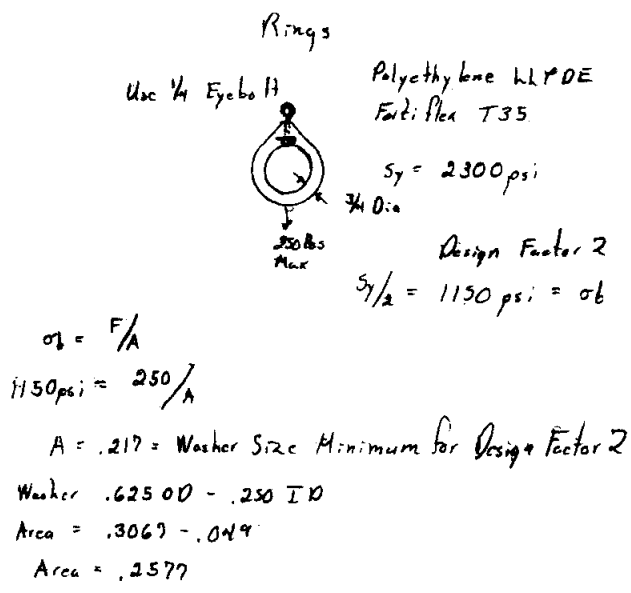 Rings
Use 1/4 Eyebolt
Polyethylene LLPDE
Fortiflex T35
Sy = 2300 psi
3/4 Dia
250 lbs
Max
Design Factor 2
Sy/2 = 1150 psi = σb
σb = F/A
1150psi = 250/A
A = .217 = Washer Size Minimum for Design Factor 2
Washer .625 OD - .250 ID
Area = .3067 - .049
Area = .2577